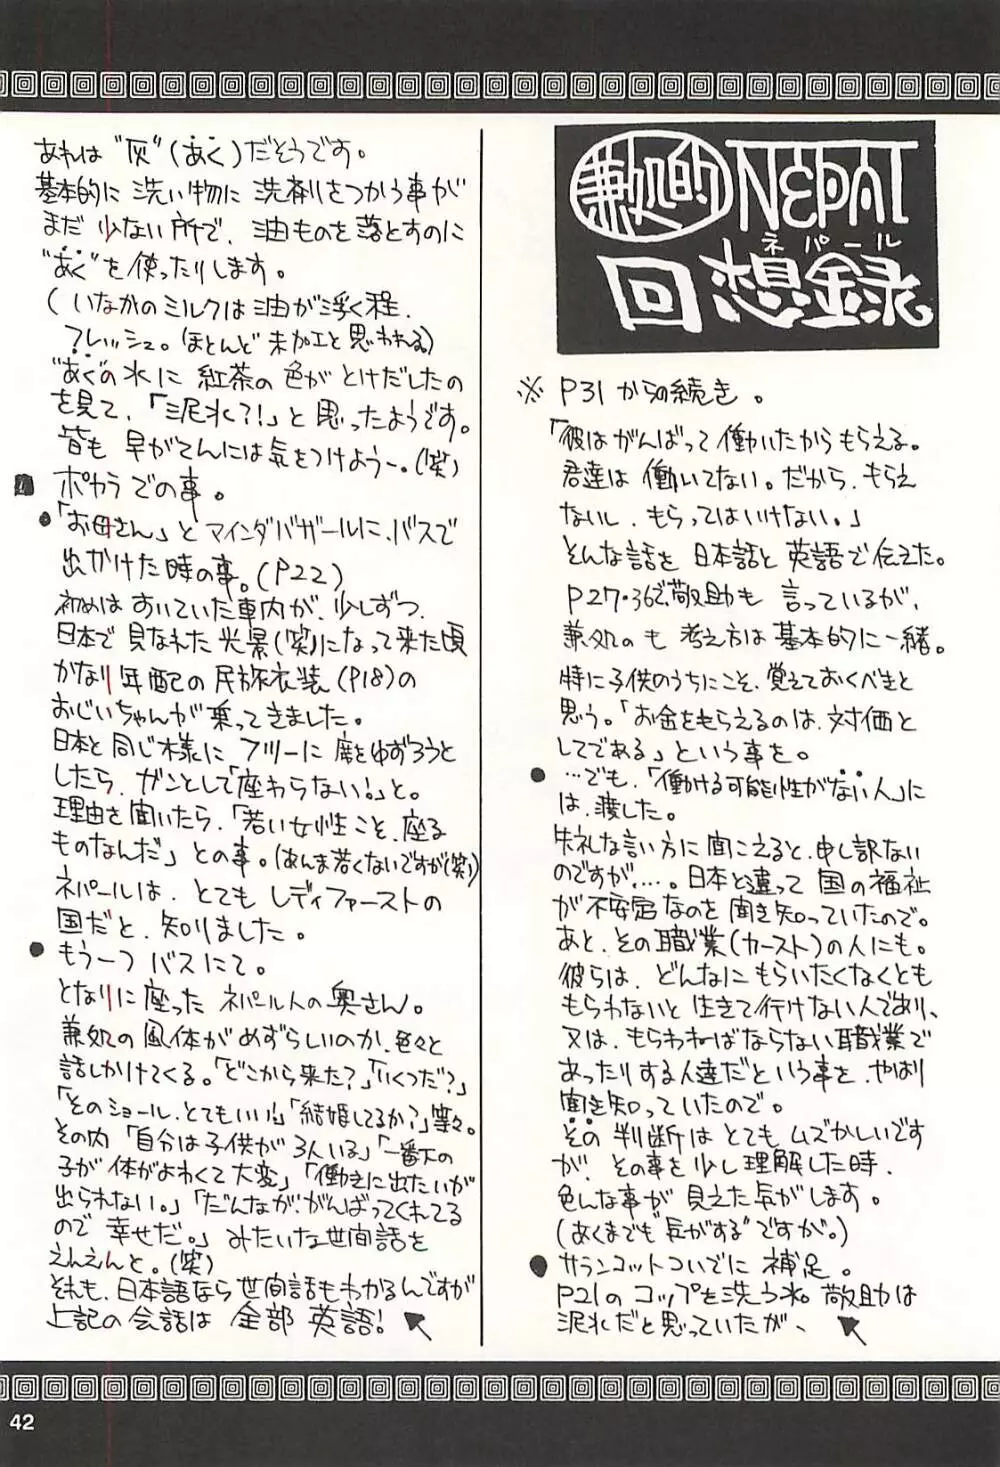 兼処的NEPAL
ネパール
回想録
※ P31 からの続き。
「彼はがんばって働いたからもらえる。
君達は 働いてない。だから、もらえ
ないし、もらってはいけない。」
そんな話を 日本語と 英語で伝えた。
P27・36で、敬助も 言っているが、
兼処のも 考え方は 基本的に一緒。
特に子供のうちにこそ、覚えておくべきと
思う。「お金をもらえるのは、対価と
してである」という事を。
● …でも、「働ける可能性がない人」に
は、渡した。
失礼な言い方に 聞こえると、申し訳ない
のですが、…。日本と違って 国の福祉
が 不安定なのを 聞き知っていたので。
あと、その職業(カースト)の人にも。
彼らは、どんなにもらいたくなくとも
もらわないと 生きて行けない人であり、
又は、もらわねばならない職業で
あったりする人達だという事を、やはり
聞き知っていたので。
その 判断は とても ムズかしいです
が、その事を 少し理解した時、
色んな事が 見えた気がします。
(あくまでも“気がする”ですが。)
● サランコットついでに 補足。
P21の コップを洗う水。敬助は
泥水だと思っていたが、
あれは “灰”(あく)だそうです。
基本的に 洗い物に 洗剤をつかう事が
まだ 少ない所で、油ものを 落とすのに
“あく”を 使ったりします。
(いなかのミルクは 油が浮く程、
フレッシュ。(ほとんど 未加工と思われる)
“あく”の水に 紅茶の色がとけだしたの
を見て、「泥水?!」と思ったようです。
皆も 早がてんには気をつけようー。(笑)
■ ポカラでの事。
●「お母さん」と マインダバザールに、バスで
出かけた時の事。(P22)
初めは すいていた車内が、少しずつ、
日本で見なれた 光景(笑)になって来た頃
かなり年配の 民族衣装(P18)の
おじいちゃんが 乗ってきました。
日本と同じ様に フツーに席をゆずろうと
したら、ガンとして「座わらない!」と。
理由を聞いたら、「若い女性こそ、座る
ものなんだ」との事。(あんま若くないですが(笑))
ネパールは、とても レディファーストの
国だと、知りました。
● もう一つ バスにて。
となりに座った ネパール人の奥さん。
兼処の風体が めずらしいのか、色々と
話しかけてくる。「どこから来た?」「いくつだ?」
「そのショール、とてもいい!」「結婚してるか?」等々。
その内「自分は子供が 3人いる」「一番下の
子が 体がよわくて大変」「働きに出たいが
出られない。」「だんなが、がんばってくれてる
ので 幸せだ。」みたいな世間話を
えんえんと。(笑)
それも、日本語なら世間話もわかるんですが
上記の会話は 全部 英語!
42